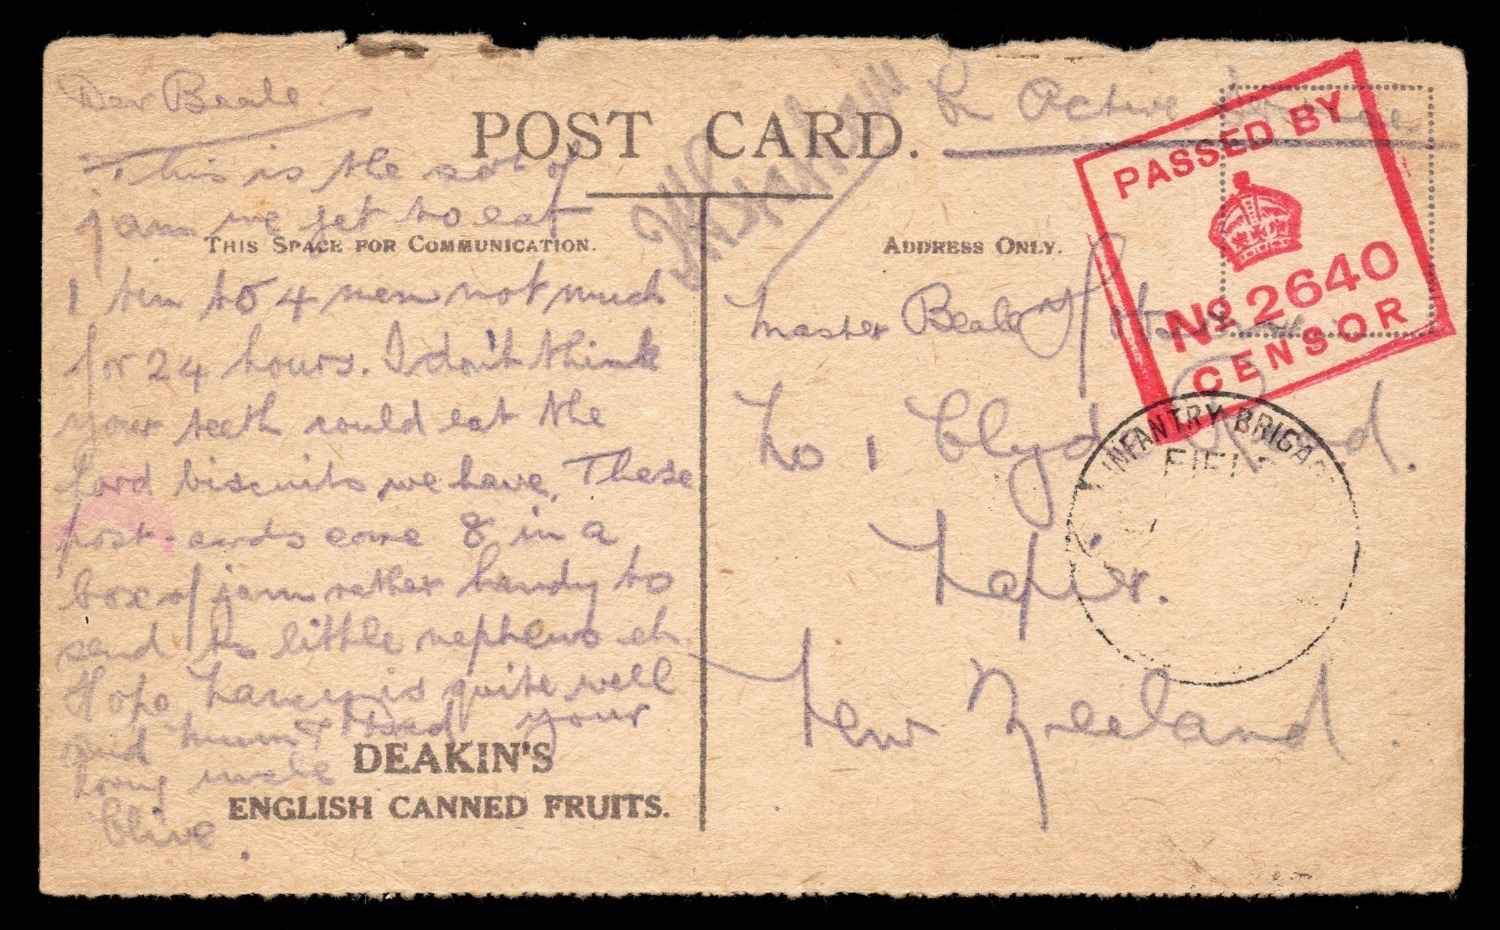 Dear Beale
This is the sort of
jam we get to eat
1 tin to 4 men not much
for 24 hours. I don't think
your teeth could eat the
hard biscuits we have, These
post-cards come 8 in a
box of jam rather handy to
send to little nephews eh
Hope is quite well
and mum & Dad your
loving uncle
Clive.
POST CARD.
THIS SPACE FOR COMMUNICATION.
DEAKIN'S
ENGLISH CANNED FRUITS.
On Active Service
ADDRESS ONLY.
Master Beale
No 1 Clyde Road.
Napier.
New Zeeland.
PASSED BY
No 2640
CENSOR
INFANTRY BRIGA
FIEL